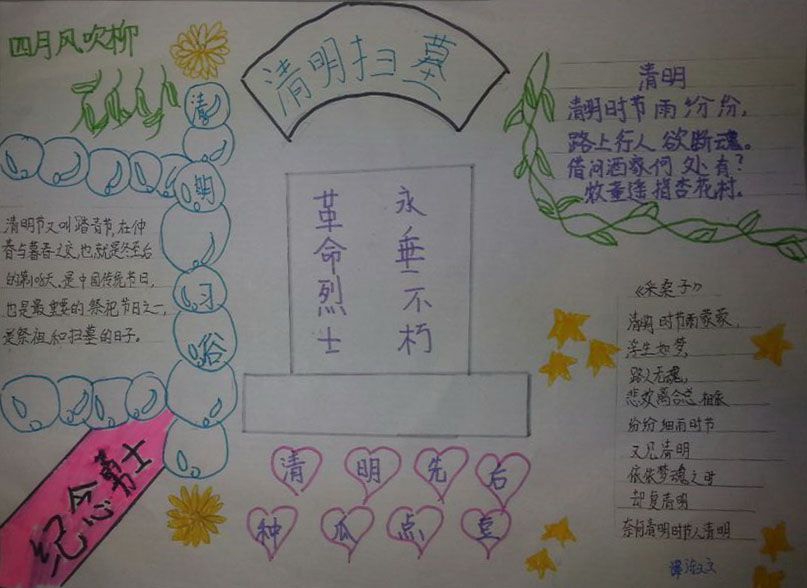 四月风吹柳
清明扫墓
清明习俗
清明节又叫踏青节,在仲
春与暮春之交,也就是冬至后
的第106天,是中国传统节日,
也是最重要的祭祀节日之一,
是祭祖和扫墓的日子。
纪念勇士
革命烈士
永垂不朽
清明先后
种瓜点豆
清明
清明时节雨纷纷,
路上行人欲断魂。
借问酒家何处有?
牧童遥指杏花村.
《采桑子》
清明时节雨蒙蒙,
浮生如梦,
路人无魂,
悲欢离合总相依
纷纷细雨时节
又见清明
依依梦魂之时
却复清明
奈何清明时节人清明